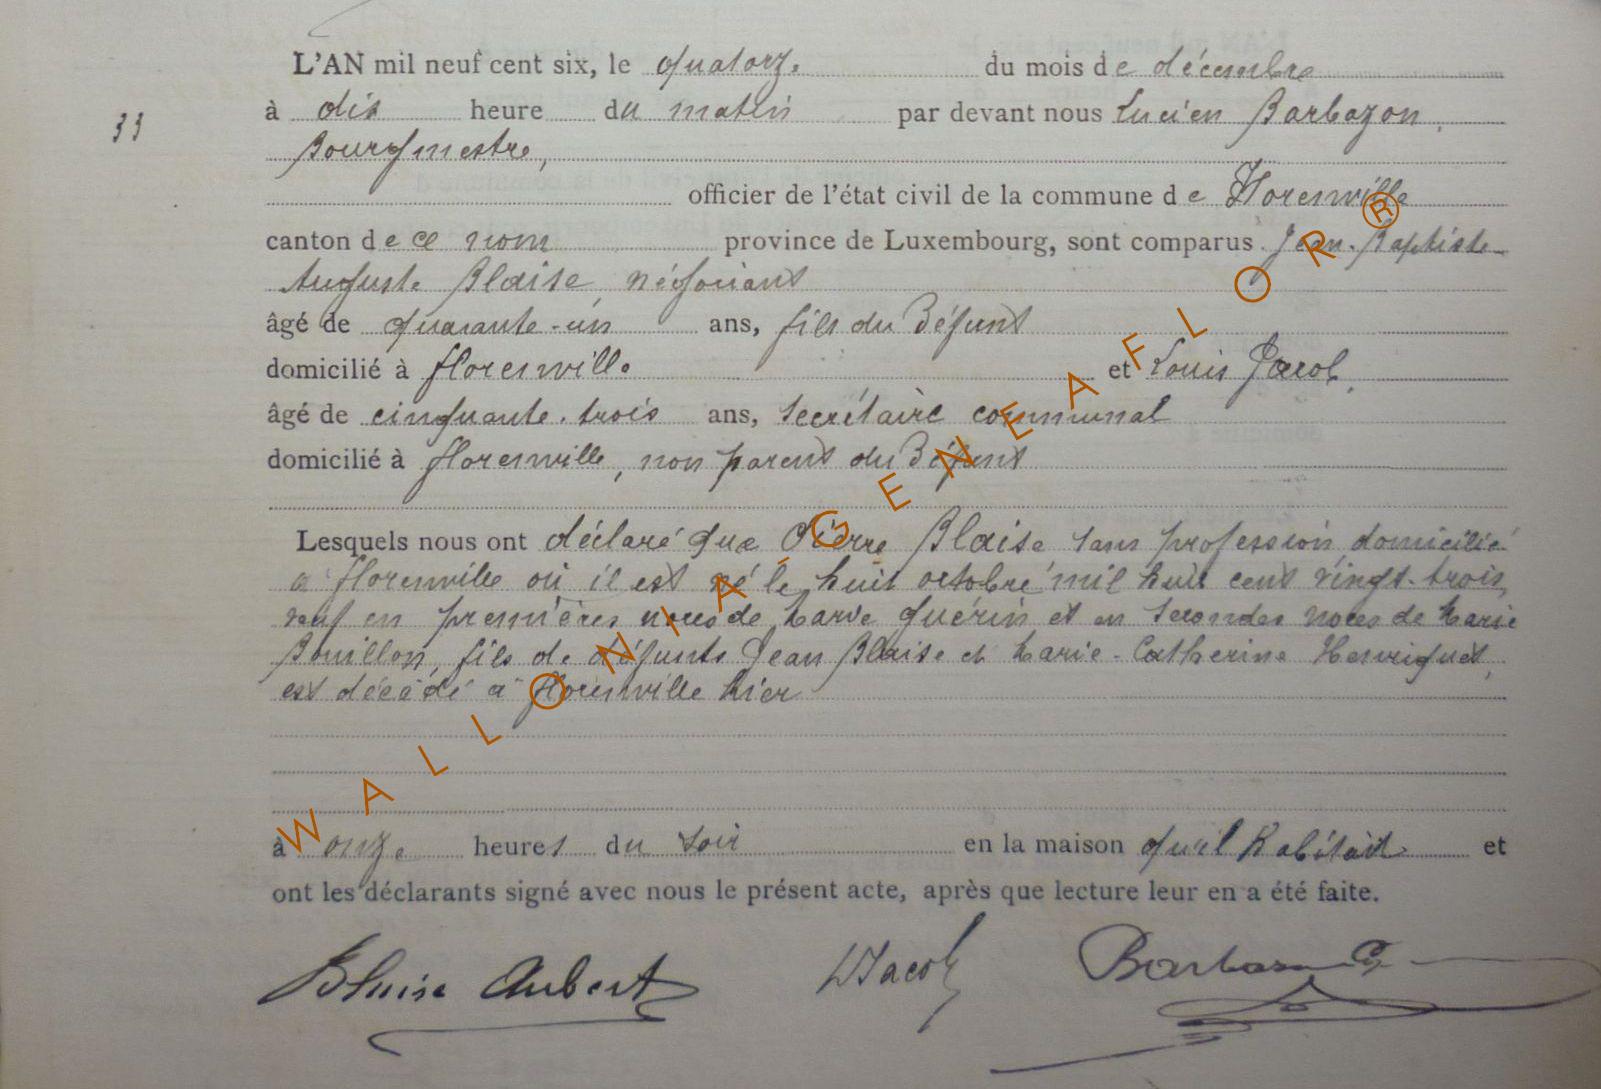 L'AN mil neuf cent six, le quatorze du mois de décembre
33
à dix heure du matin par devant nous Lucien Barbazon,
Bourgmestre,
officier de l'état civil de la commune de Florenville
canton de ce nom province de Luxembourg, sont comparus Jean-Baptiste
Auguste Blaise, négociant
âgé de quarante-un ans, fils du défunt
domicilié à Florenville et Louis Jacob,
âgé de cinquante-trois ans, secrétaire communal
domicilié à Florenville, non parent du défunt
Lesquels nous ont déclaré que Pierre Blaise sans profession, domicilié
à Florenville où il est né le huit octobre mil huit cent vingt-trois,
veuf en premières noces de Marie Guérin et en secondes noces de Marie
Bouillon, fils de défunts Jean Blaise et Marie-Catherine Henriquet,
est décédé à Florenville hier
à onze heures du soir en la maison qu'il habitait et
ont les déclarants signé avec nous le présent acte, après que lecture leur en a été faite.
Blaise Aubert LJacob Barbazon
WALLONIA-GENEAFLOR®